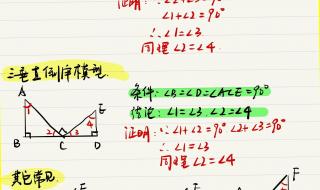 证明: ∵∠2+∠3=90°
∠1+∠2=90°
∴∠1=∠3
同理∠2=∠4.
三垂直倒角模型.
A
E
1
4
2
3
B
C
D
条件: ∠B=∠D=∠ACE=90°
结论: ∠1=∠3, ∠2=∠4
证明: ∵∠1+∠2=90° ∠2+∠3=90°
∴∠1=∠3
同理∠2=∠4
其它常见
E
F